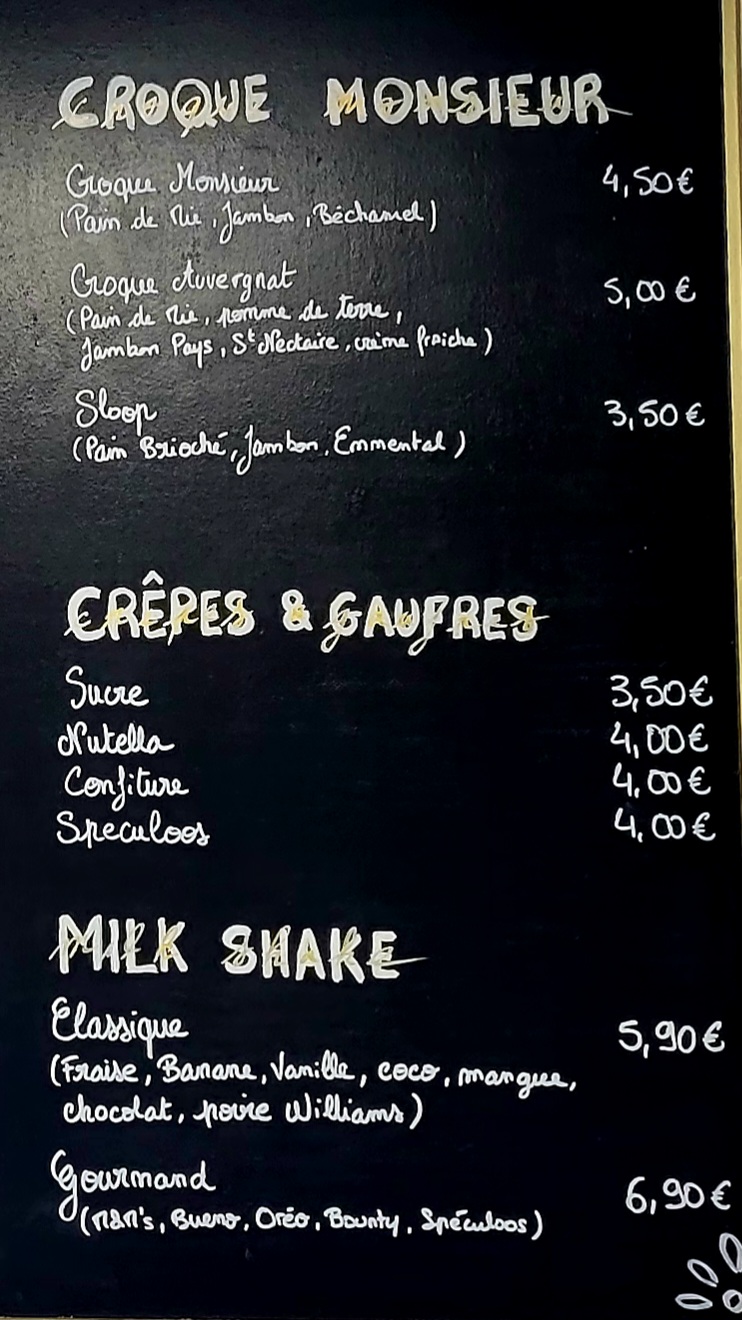 CROQUE MONSIEUR
Croque Monsieur 4,50€
(Pain de Mie, Jambon, Béchamel)
Croque Auvergnat 5,00€
(Pain de Mie, pomme de terre,
Jambon Pays, St Nectaire, crème fraiche)
Sloop 3,50€
(Pain Brioché, Jambon, Emmental)
CRÊPES & GAUFRES
Sucre 3,50€
Nutella 4,00€
Confiture 4,00€
Speculoos 4,00€
MILK SHAKE
Classique 5,90€
(Fraise, Banane, Vanille, coco, mangue,
chocolat, poire Williams)
Gourmand 6,90€
(M&M's, Bueno, Oréo, Bounty, Spéculoos)